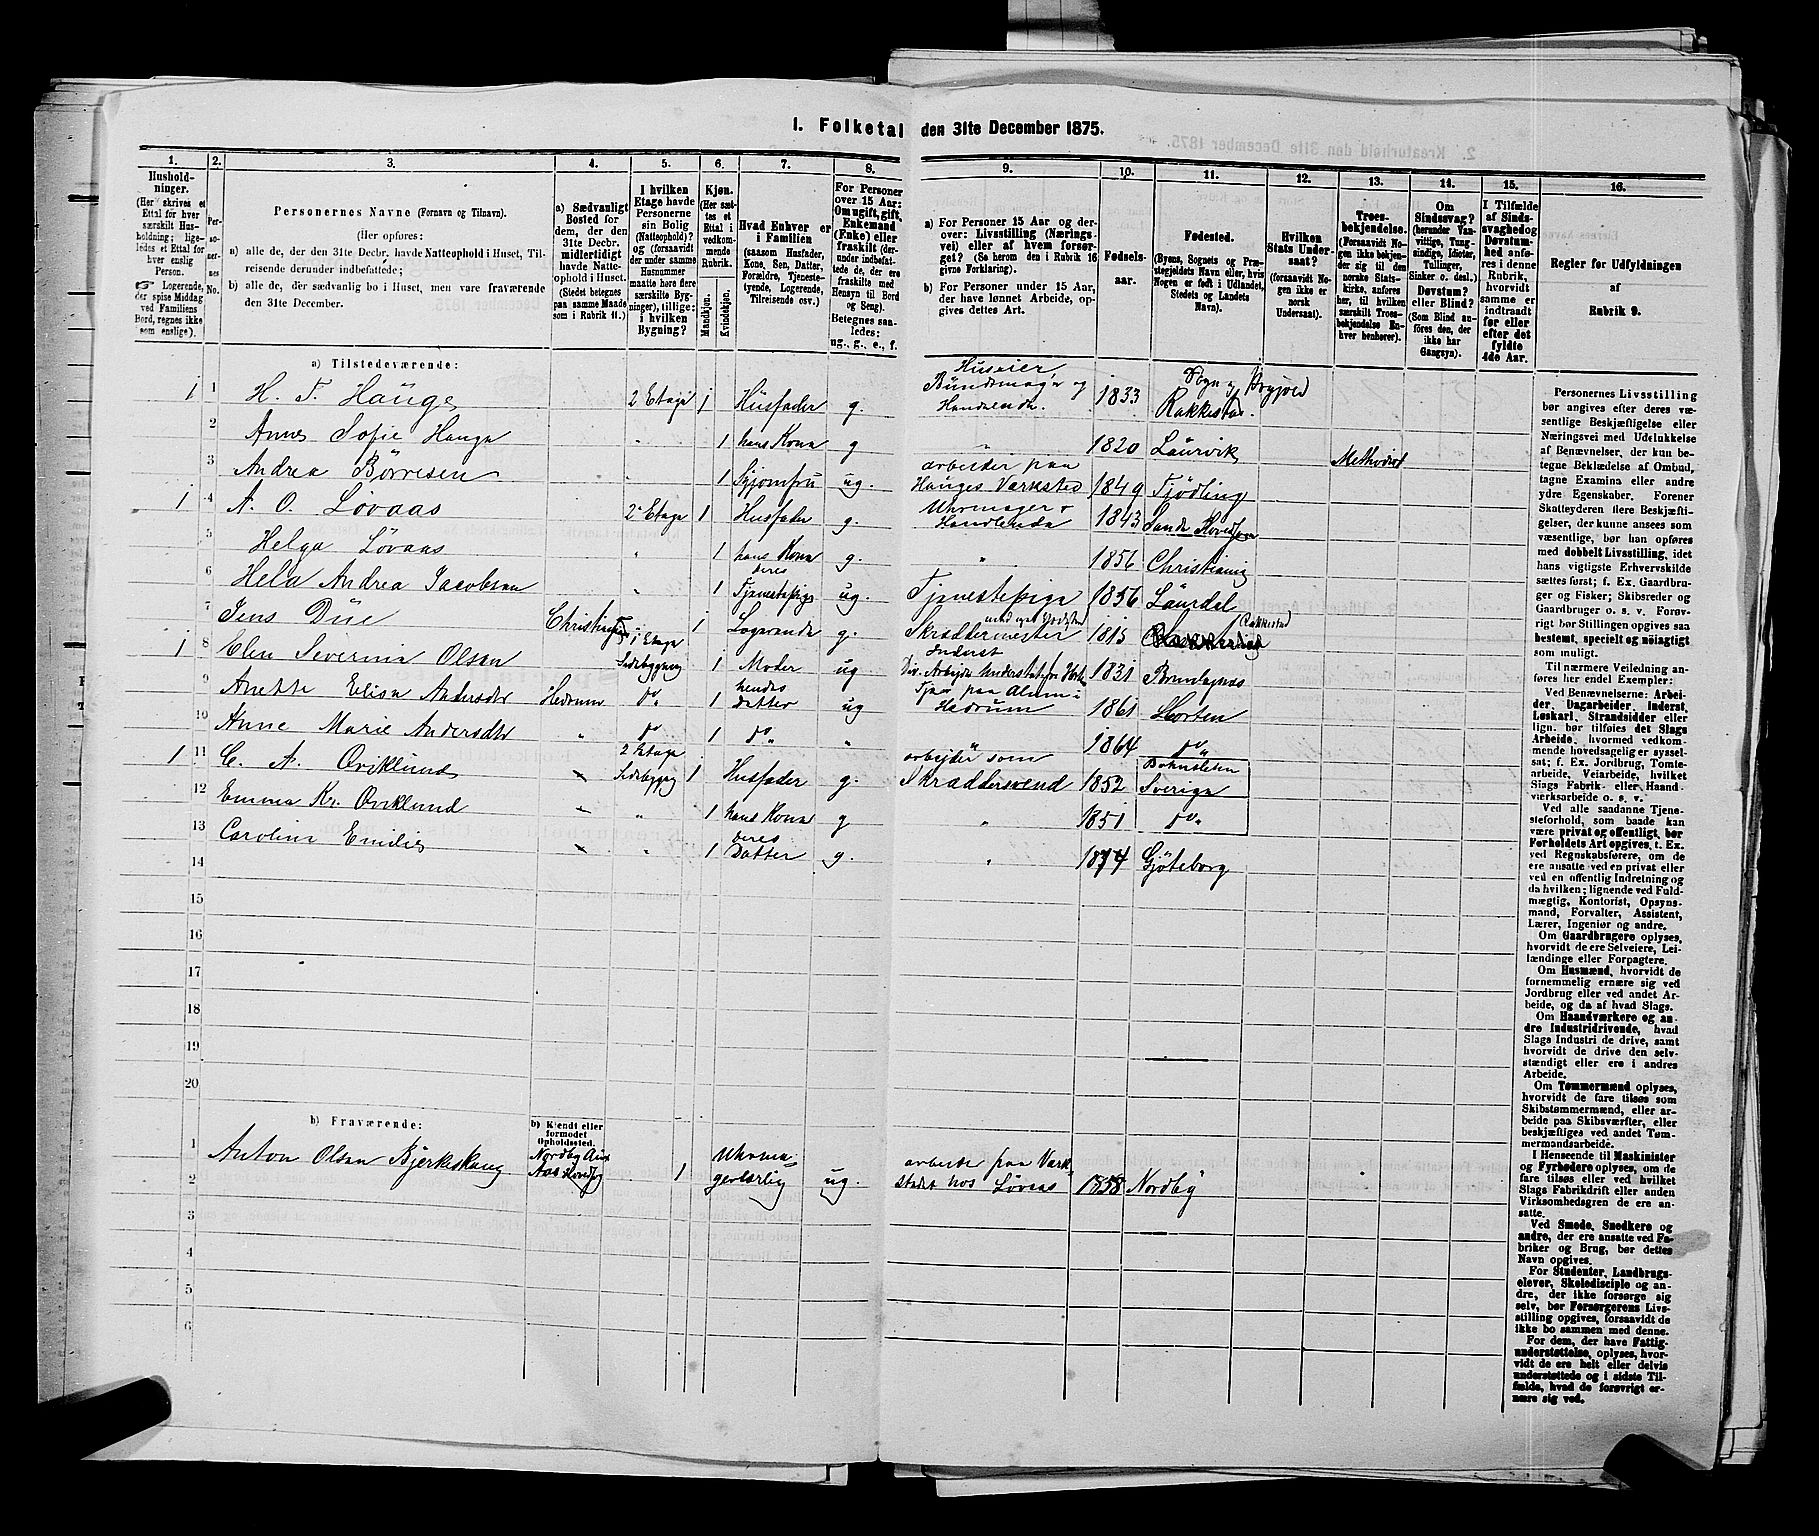 1. Folketal den 31te December 1875.
1. 2. 3. 4. 5. 6. 7. 8. 9. 10. 11. 12. 13. 14. 15. 16.
Hushold-
ninger.
(Her skrives et
Ettal for hver
særskilt Hus-
holdning; lige-
ledes et Ettal for
hver enslig
Person.
Logerende,
der spise Middag
ved Familiens
Bord, regnes ikke
som enslige).
Per-
so-
ner-
nes
No.
Personernes Navne (Fornavn og Tilnavn).
(Her opføres:
a) alle de, der den 31te Decbr. havde Natteophold i Huset, Til-
reisende derunder indbefattede;
b) alle de, der sædvanlig bo i Huset, men vare fraværende
den 31te December.
a) Sædvanligt
Bosted for
dem, der den
31te Decbr.
midlertidigt
havde Natte-
ophold i Huset.
(Stedet betegnes
paa samme Maade
som i Rubrik 11.)
I hvilken
Etage havde
Personerne
sin Bolig
(Natteophold)?
(forsaavidt
der under samme
Husnummer
maatte høre flere
særskilte Byg-
ninger), tillige:
i hvilken
Bygning?
Kjøn.
(Her sæt-
tes et
Ettal i
vedkom-
mende
Rubrik.
Mandkjøn.
Kvindekjøn.
Hvad Enhver er
i Familien
(saasom Husfader,
Kone, Søn, Datter,
Forældre, Tjeneste-
tyende, Logerende,
Tilreisende osv.)
For Personer
over 15 Aar:
Om ugift, gift,
Enkemand
(Enke) eller
fraskilt (der-
under indbefat-
tede de, der ere
fraskilte med
Hensyn til Bord
og Seng).
Betegnes saa-
ledes:
ug., g., e., f.
a) For Personer 15 Aar og der-
over: Livsstilling (Nærings-
vei) eller af hvem forsør-
get? (Se herom den i Rubrik 16
givne Forklaring).
b) For Personer under 15 Aar,
der have lønnet Arbeide, op-
gives dettes Art.
Fødsels-
aar.
Fødested.
(Byens, Sognets og Præ-
stegjeldets Navn eller, hvis
Nogen er født i Udlandet,
Stedets og Landets
Navn).
Hvilken
Stats Under-
saat?
(forsaavidt No-
gen ikke er
norsk
Undersaat).
Troes-
bekjendelse.
(Forsaavidt No-
gen ikke bekjen-
der sig til den
norske Stats-
kirke, anføres
her, til hvilken
særskilt Troes-
bekjendelse En-
hver henhører).
Om
Sindssvag?
(herunder Van-
vittige, Tung-
sindige, Idioter,
Tullinger,
Sinker o. desl.)
Døvstum?
eller Blind?
(Som Blind an-
føres den, der
ikke har
Gangsyn).
I Tilfælde
af Sinds-
svaghed og
Døvstum-
hed anfø-
res i denne
Rubrik,
hvorvidt
samme er
indtraadt
før eller
efter det
fyldte
4de Aar.
Regler for Udfyldningen
af
Rubrik 9.
a) Tilstedeværende:
1 1 H. T. Hauge 2 Etage 1 Husfader g. Huseier, Bundtmager og Handlende. 1833 Sogn og Prgjeld Rakkestad.
2 Anne Sofie Hauge " 1 hans Kone g " 1820 Laurvik Methodist
3 Andrea Børresen " 1 Syjomfru ug. arbeider paa Hauges Værksted 1849 Tjødling
1 4 A. O. Løvaas 2 Etage 1 Husfader g. Uhrmager & Handlende 1843 Sande
5 Helga Løvaas " 1 hans Kone g. " 1856 Christiania
6 Hela Andrea Jacobsen " 1 deres Tjenestepige ug. Tjenestepige 1856 Laurdal
7 Jens Due Christiania 1 Etage 1 Logerende g. Skræddermester 1815 Rakkestad
1 8 Elen Severine Olsen Sidebygning 1 Moder ug Inderst 1831 Brunlagnæs
9 Anette Elisa Andersdtr Hedrum do 1 hendes Datter ug Tjen. paa i Hedrum 1861 Horten
10 Anne Marie Andersdtr " do 1 do " 1864 do
1 11 C. A. Qviklund 2 Etage Sidebygg 1 Husfader g. arbejder som Skræddersvend 1852 Bohuslehn Sverige
12 Emma Kr. Qviklund " 1 hans Kone g " 1851 do
13 Carolina Emilie " 1 deres Datter g. " 1874 Gjøteborg
14
15
16
17
18
19
20
b) Fraværende:
b) Kjendt eller
formodet
Opholdssted.
1 Anton Olsen Bjerkeskaug Nordby Aas Hovedsg 1 Uhrmagerlærling ug. arbeider paa Værkstedet hos Løvaas 1858 Nordby
2
3
4
5
6
Personernes Livsstilling
bør angives efter deres væ-
sentlige Beskjæftigelse eller
Næringsvei med Udelukkelse
af Benævnelser, der kun be-
tegne Beklædelse af Ombud,
tagne Examina eller andre
ydre Egenskaber. Forener
Skatteyderen flere Beskjæfti-
gelser, der kunne ansees som
væsentlige, bør han opføres
med dobbelt Livsstilling, idet
hans vigtigste Erhvervskilde
sættes først; f. Ex. Gaardbru-
ger og Fisker; Skibsreder og
Gaardbruger o. s. v. Forøv-
rigt bør Stillingen opgives saa
bestemt, specielt og nøiagtigt
som muligt.
Til nærmere Veiledning an-
føres her endel Exempler:
Ved Benævnelserne: Arbei-
der, Dagarbeider, Inderst,
Løskarl, Strandsidder eller
lign. bør tilføies det Slags
Arbeide, hvormed vedkom-
mende hovedsagelig er syssel-
sat; f. Ex. Jordbrug, Tomte-
arbeide, Veiarbeide, hvilket
Slags Fabrik- eller Haand-
værksarbeide o. s. v.
Ved alle saadanne Tjene-
steforhold, som baade kan
være privat og offentligt, bør
Forholdets Art opgives, t. Ex.
ved Regnskabsførere, om de
ere ansatte ved en privat eller
ved en offentlig Indretning og
da hvilken; lignende ved Fuld-
mægtig, Kontorist, Opsyns-
mand, Forvalter, Assistent,
Lærer, Ingeniør og andre.
Om Gaardbrugere oplyses,
hvorvidt de ere Selveiere, Lei-
lændinge eller Forpagtere.
Om Husmænd, hvorvidt de
fornemmelig ernære sig ved
Jordbrug eller ved andet Ar-
beide, og da af hvad Slags.
Om Haandværkere og an-
dre Industridrivende, hvad
Slags Industri de drive, samt
hvorvidt de drive den selv-
stændigt eller ere i andres
Arbeide.
Om Tømmermænd oplyses,
hvorvidt de fare tilsøs som
Skibstømmermænd, eller ar-
beide paa Skibsværfter, eller
beskjæftiges ved andet Tøm-
mermandsarbeide.
I Henseende til Maskinister
og Fyrbødere oplyses, om de
fare tilsøs eller ved hvilket
Slags Fabrikdrift eller anden
Virksomhedsgren de ere an-
satte.
Ved Smede, Snedkere og
andre, der ere ansatte ved Fa-
briker og Brug, bør dettes
Navn opgives.
For Studenter, Landbrugs-
elever, Skoledisciple og an-
dre, der ikke forsørge sig
selv, bør Forsørgerens Livs-
stilling opgives, forsaavidt de
ikke bo sammen med denne.
For dem, der have Fattig-
understøttelse, oplyses, hvor-
vidt de ere helt eller delvis
understøttede og i sidste Til-
fælde, hvad de forøvrigt er-
nære sig ved.